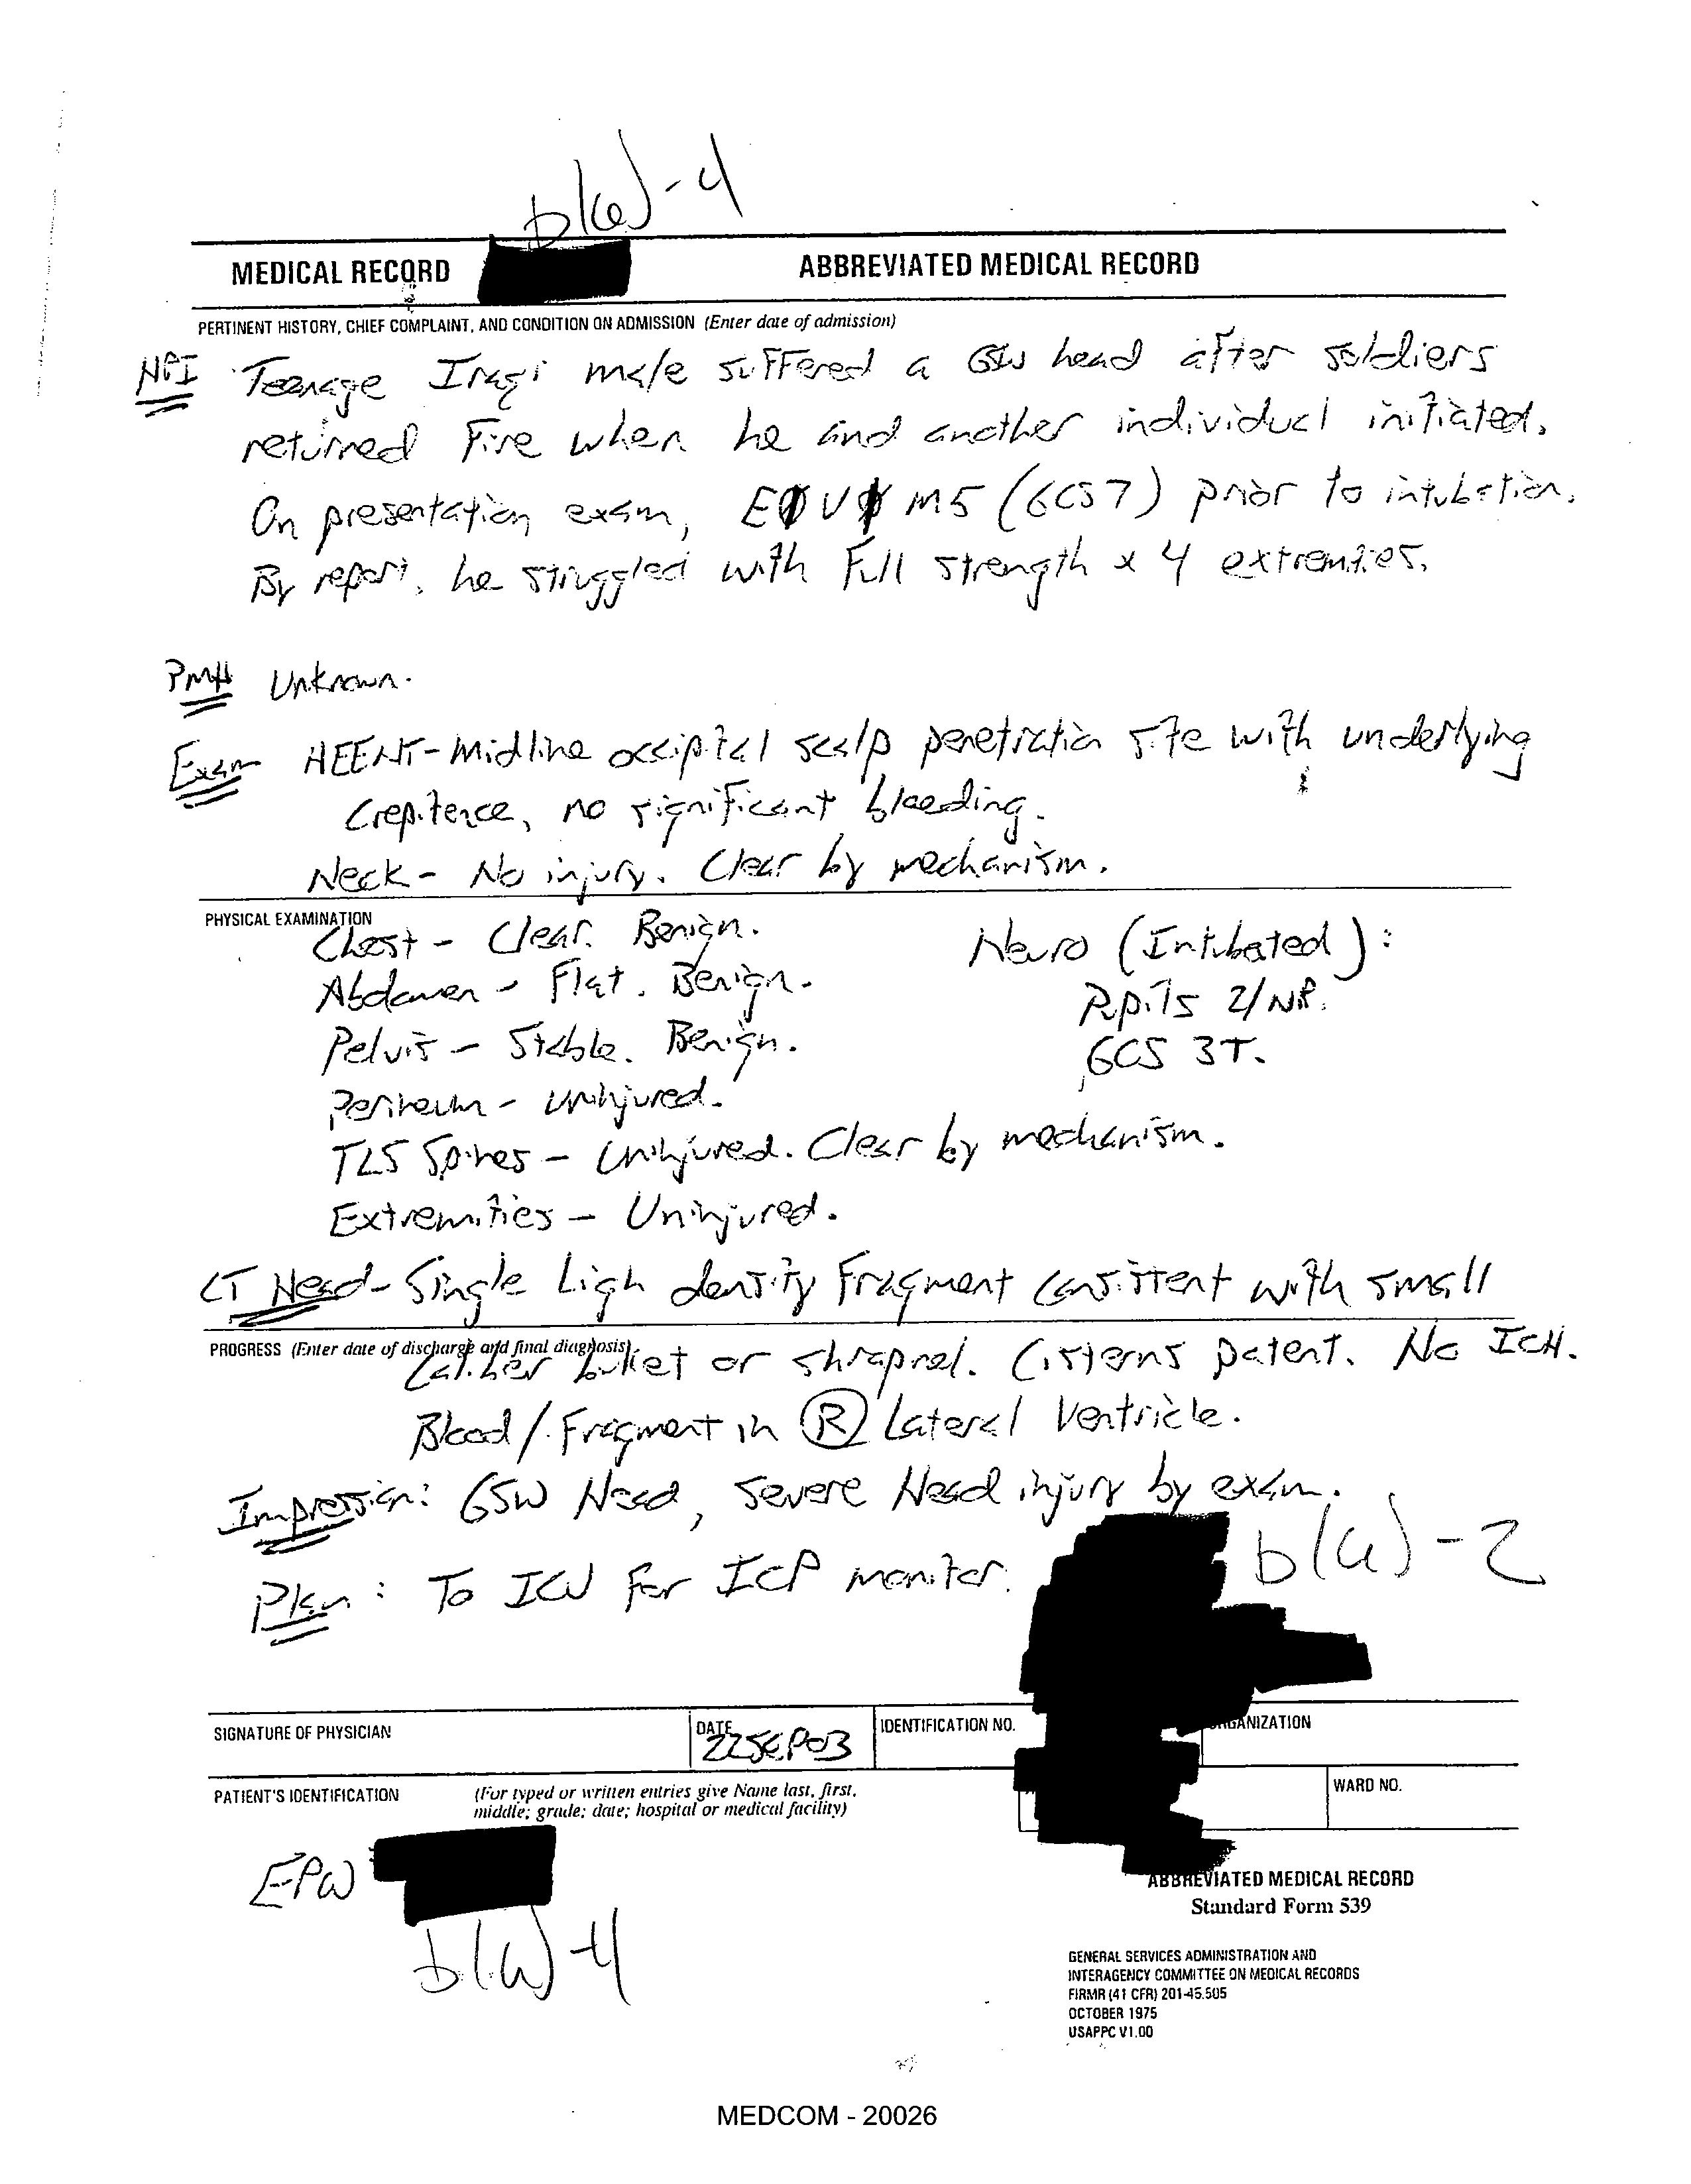 b(6)-4
MEDICAL RECORD ABBREVIATED MEDICAL RECORD
PERTINENT HISTORY, CHIEF COMPLAINT, AND CONDITION ON ADMISSION (Enter date of admission)
HPI Teenage Iraqi male suffered a GSW head after soldiers
returned fire when he and another individual initiated.
On presentation exam, E V M5 (GCS 7) prior to intubation.
By report, he struggled with full strength x 4 extremities.
PMH Unknown.
Exam HEENT - Midline occipital scalp penetration site with underlying
crepitence, no significant bleeding.
Neck - No injury. Clear by mechanism.
PHYSICAL EXAMINATION
Chest - Clear. Benign. Neuro (Intubated):
Abdomen - Flat. Benign. Pupils 2/NR.
Pelvis - Stable. Benign. GCS 3T.
Perineum - Uninjured.
TLS Spines - Uninjured. Clear by mechanism.
Extremities - Uninjured.
CT Head - Single high density fragment consistent with small
PROGRESS (Enter date of discharge and final diagnosis)
caliber bullet or shrapnel. Cisterns patent. No ICH.
Blood/Fragment in (R) Lateral Ventricle.
Impression: GSW Head, severe Head injury by exam.
Plan: To ICU for ICP monitor.
b(6)-2
SIGNATURE OF PHYSICIAN DATE 22SEP03 IDENTIFICATION NO. ORGANIZATION
PATIENT'S IDENTIFICATION (For typed or written entries give Name last, first, WARD NO.
middle; grade; date; hospital or medical facility)
EPW
b(6)-4
ABBREVIATED MEDICAL RECORD
Standard Form 539
GENERAL SERVICES ADMINISTRATION AND
INTERAGENCY COMMITTEE ON MEDICAL RECORDS
FIRMR (41 CFR) 201-45.505
OCTOBER 1975
USAPPC V1.00
MEDCOM - 20026